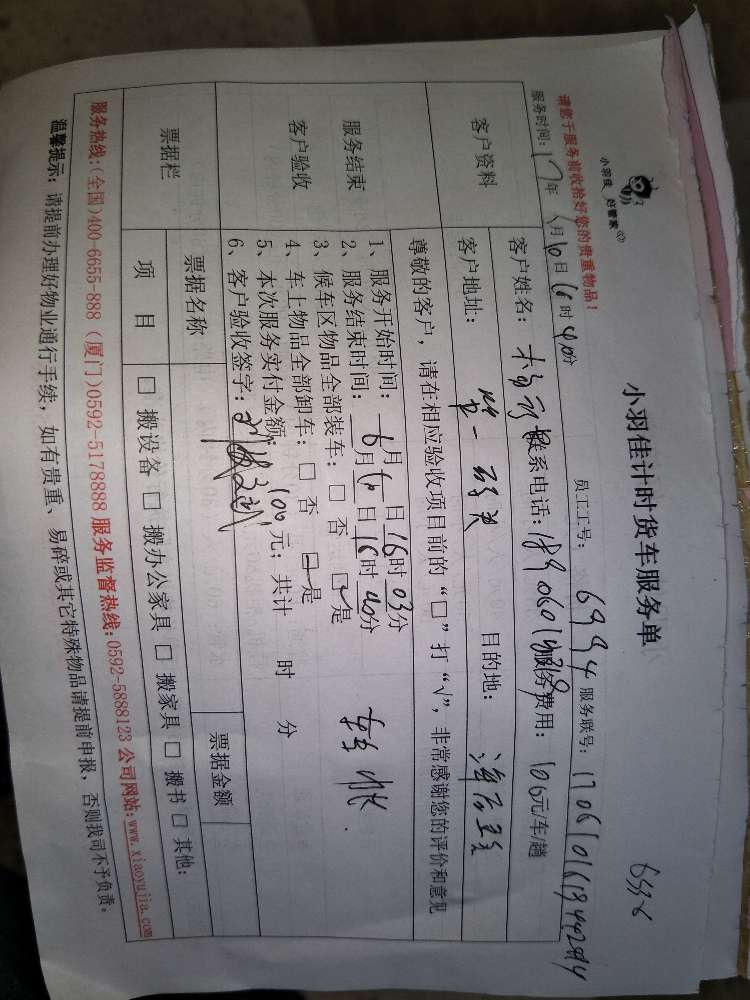 小羽佳 好管家
小羽佳计时货车服务单
请您于服务前收拾好您的贵重物品！
员工工号： 6994 服务联号：
服务时间：17年 6月10日16时40分
客户资料
客户姓名： 联系电话： 服务费用： 100元/车/趟
客户地址： 目的地：
尊敬的客户，请在相应验收项目前的“□”打“√”，非常感谢您的评价和意见
服务结束
客户验收
1、服务开始时间： 月 日16时03分
2、服务结束时间： 6月10日16时40分
3、候车区物品全部装车：□ 否 □ 是
4、车上物品全部卸车：□ 否 □ 是
5、本次服务实付金额：100元；共计 时 分
6、客户验收签字：
票据栏
票据名称
票据金额
项 目
□ 搬设备 □ 搬办公家具 □ 搬家具 □ 搬书 □ 其他：
服务热线：(全国)400-6655-888 (厦门)0592-5178888 服务监督热线：0592-5888123 公司网站：www.xiaoyujia.com
温馨提示：请提前办理好物业通行手续，如有贵重、易碎或其它特殊物品请提前申报，否则我司不予负责。